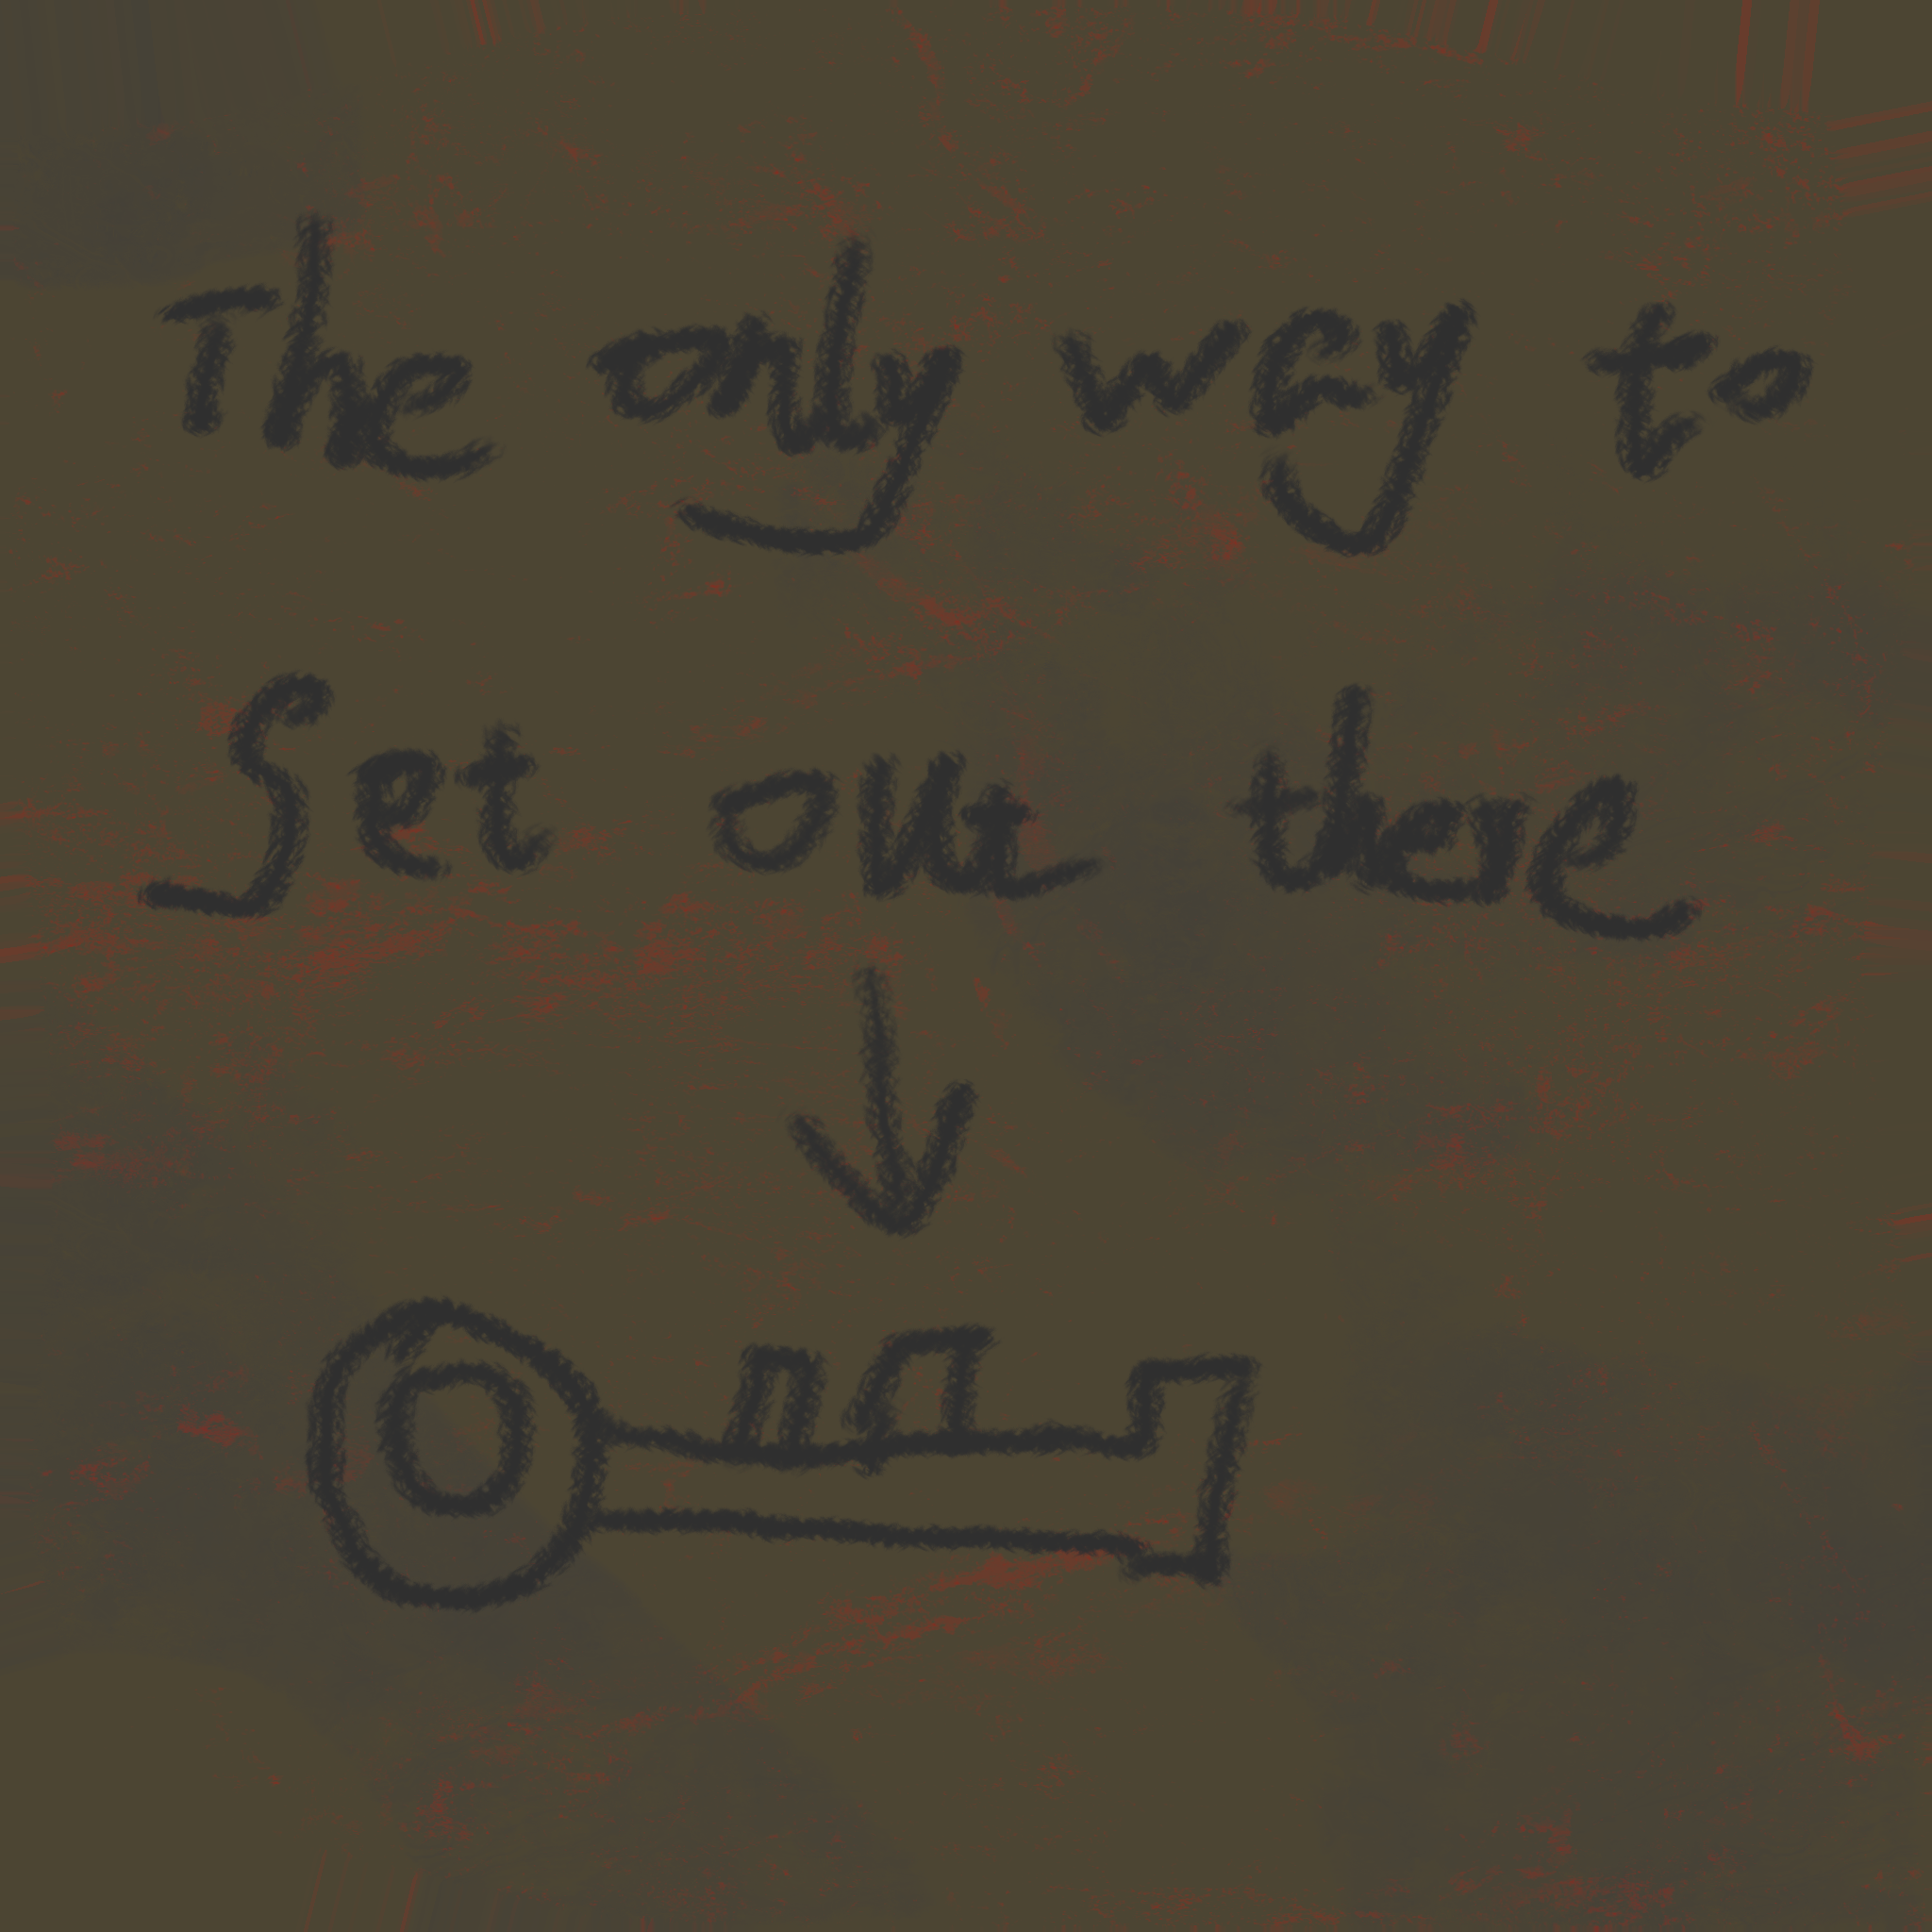 The only way to
Set out there